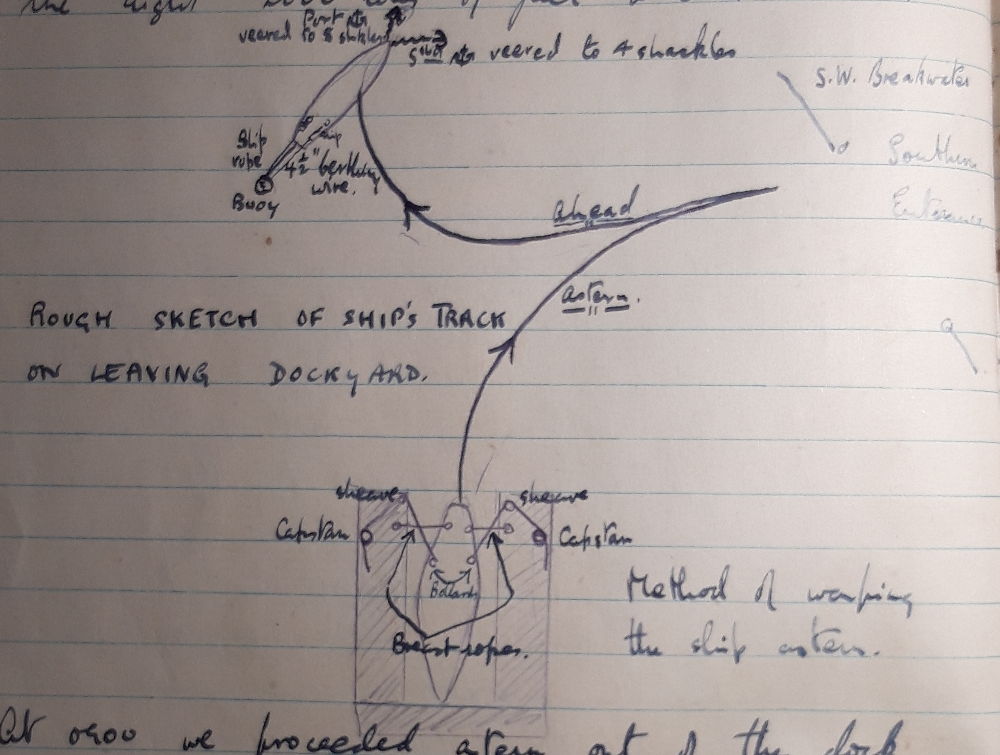 the right
Port ⚓
veered to 8 shackles
Stbd ⚓ veered to 4 shackles
S.W. Breakwater
Ship
rope
Slip
4½" berthing
wire.
Buoy
Southern
Entrance
ahead
astern.
ROUGH SKETCH OF SHIP'S TRACK
ON LEAVING DOCKYARD.
sheave
sheave
Capstan
Capstan
Bollards
Breast ropes.
Method of warping
the ship astern.
At 0900 we proceeded astern out of the dock